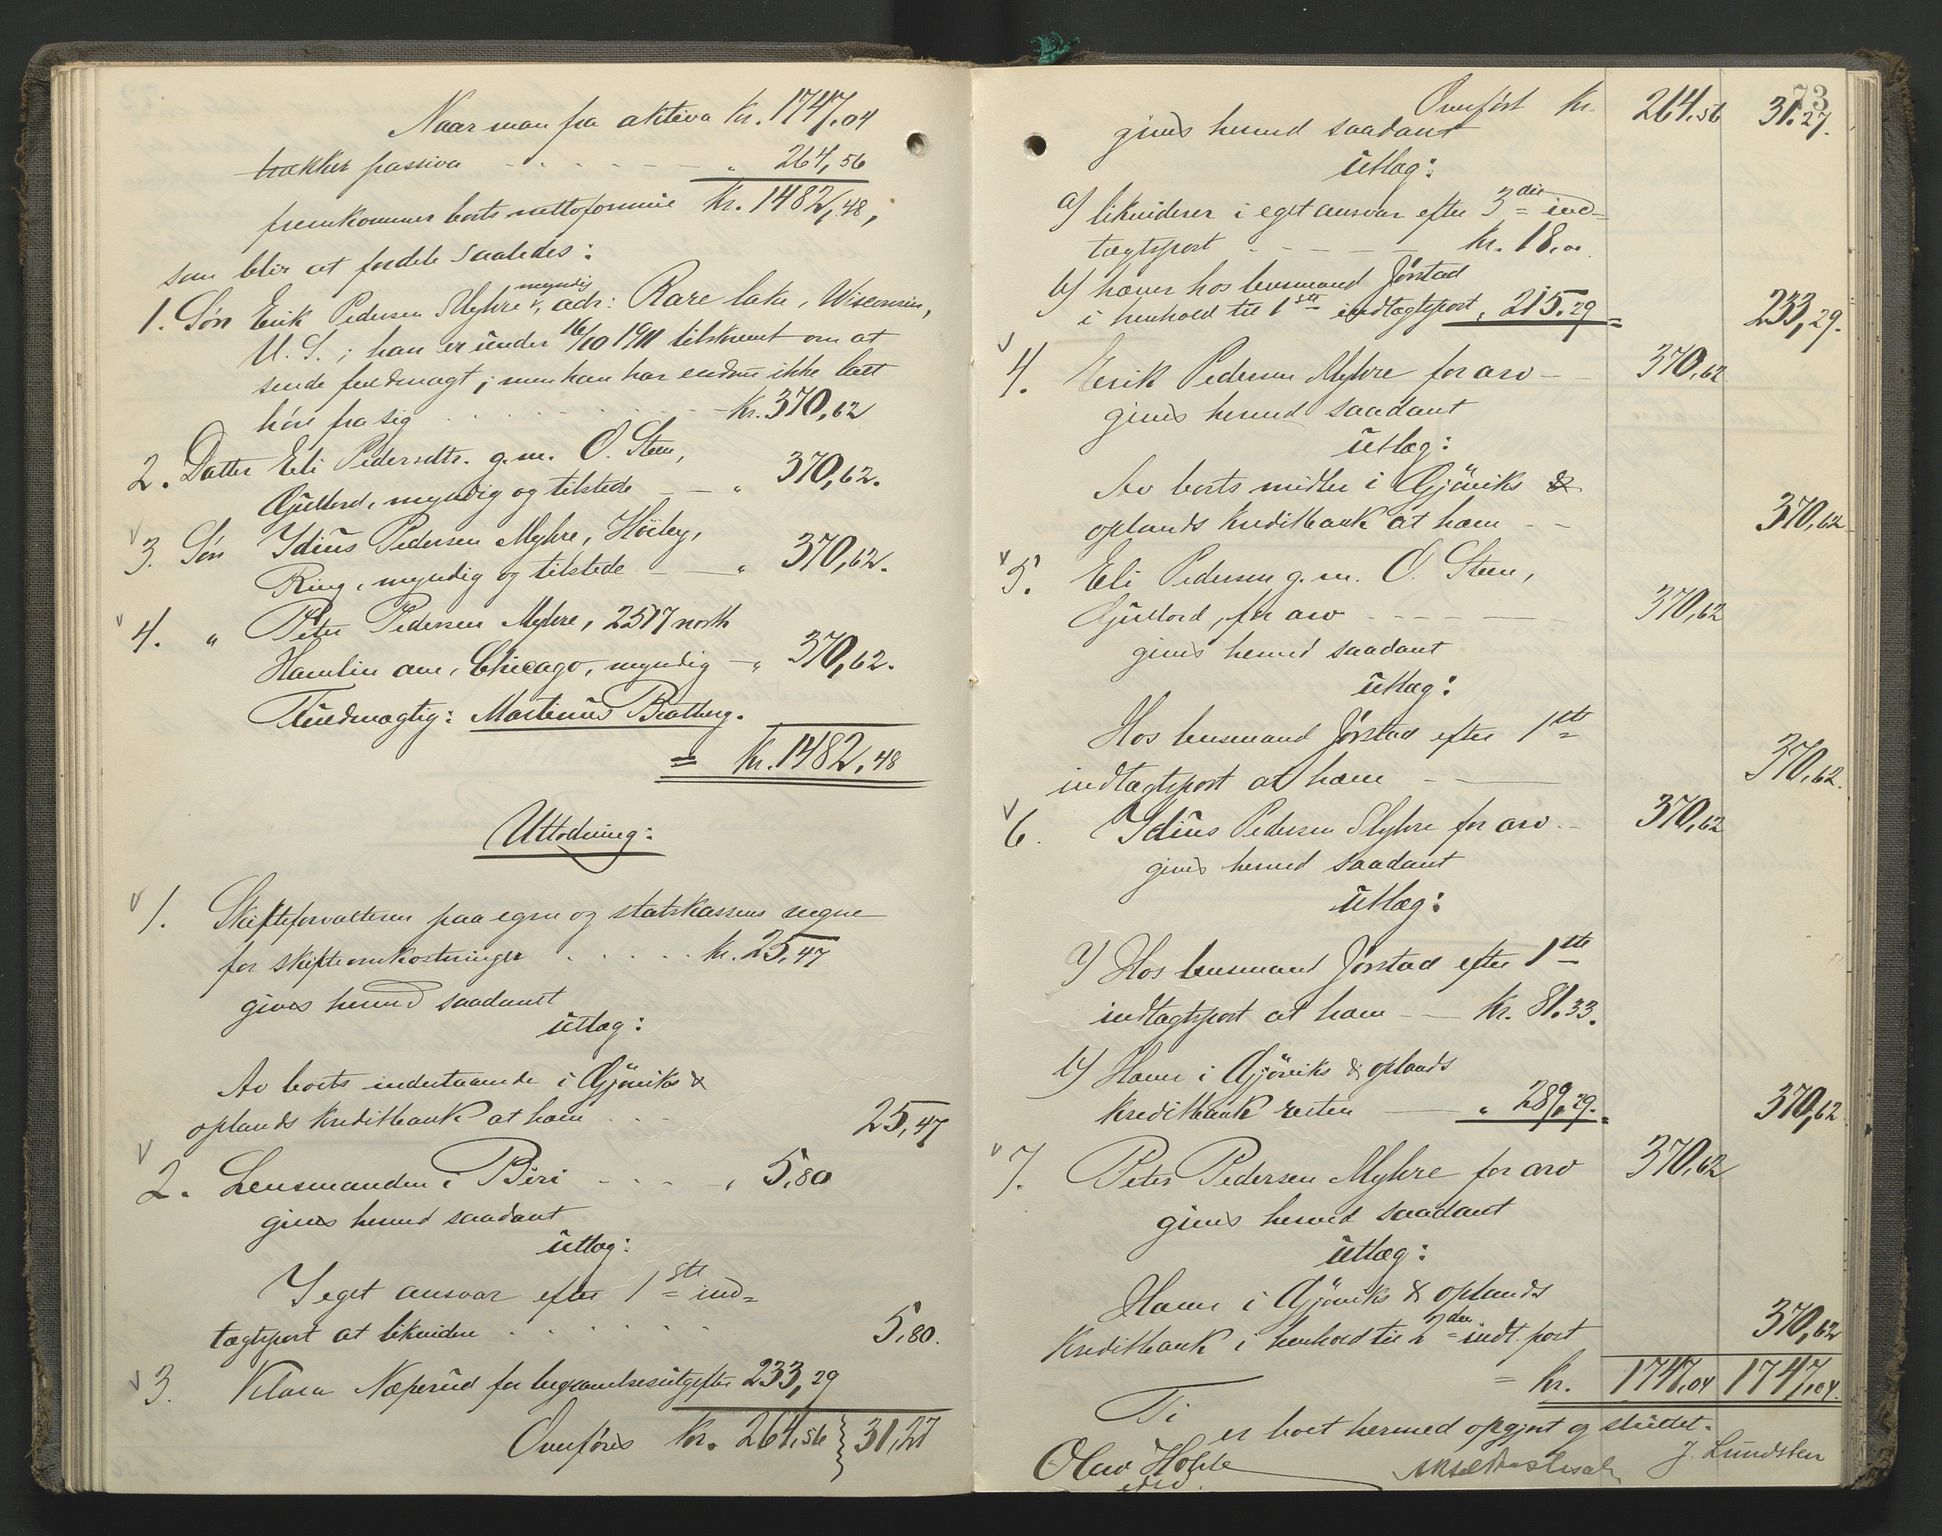 Naar man fra aktiva kr. 1747,04
trækker passiva - - - - - " 264,56
fremkommer boets nettoformue kr. 1482,48,
som blir at fordele saaledes:
1. Søn Erik Pedersen Myhre, myndig, adr: Rare lake, Wisconsin,
U. S.; han er under 16/10 1911 tilskrevet om at
sende fuldmagt; men han har endnu ikke latt
høre fra sig . . . . . . . - kr. 370,62
2. Datter Eli Pedersdtr. g. m. O. Steen,
Gjullord, myndig og tilstede - - " 370,62.
v 3. Søn Idius Pedersen Myhre, Høiby,
Ring, myndig og tilstede - - " 370,62.
v 4. " Peter Pedersen Myhre, 2517 north
Hamlin ave, Chicago, myndig - " 370,62.
Fuldmægtig: Martinius Bratberg.
= kr. 1482,48
Utlodning:
v 1. Skifteforvalteren paa egne og statskassens vegne
for skifteomkostninger . . . . . kr. 25,47
gives herved saadant
utlæg:
Av boets indestaaende i Gjøviks &
oplands kreditbank at hæve . . - 25,47
v 2. Lensmanden i Biri - - - - " 5,80
gives herved saadant
utlæg:
I eget ansvar efter 1ste ind=
tægtspost at likvidere . . . . . . 5,80.
v 3. Klara Næperud for begravelsesutgifter 233,29
Overføres kr. 264,56 } 31,27
73
Overført kr. 264,56 31,27.
gives herved saadant
utlæg:
a) likviderer i eget ansvar efter 3die ind=
tægtspost - - - - - kr. 18,00
b) hæver hos lensmand Jørstad
i henhold til 1ste indtægtspost " 215,29 = 233,29.
v 4. Erik Pedersen Myhre for arv - 370,62
gives herved saadant
utlæg:
Av boets midler i Gjøviks &
oplands kreditbank at hæve - - 370,62
v 5. Eli Pedersen g. m. O. Steen,
Gjullord, for arv - - - - - - 370,62
gives herved saadant
utlæg:
Hos lensmand Jørstad efter 1ste
indtægtspost at hæve - - 370,62.
v 6. Idius Pedersen Myhre for arv. - 370,62
gives herved saadant
utlæg:
a) Hos lensmand Jørstad efter 1ste
indtægtspost at hæve - - kr. 81,33.
b) Hæver i Gjøviks & oplands
kreditbank resten - - " 289,29. = 370,62
v 7. Peter Pedersen Myhre for arv 370,62
gives herved saadant
utlæg:
Hæver i Gjøviks & oplands
kreditbank i henhold til 2den indt. post 370,62
= kr. 1747,04 1747,04.
Ti
er boet hermed opgjort og sluttet.
Olav Hoble J. Lundsten